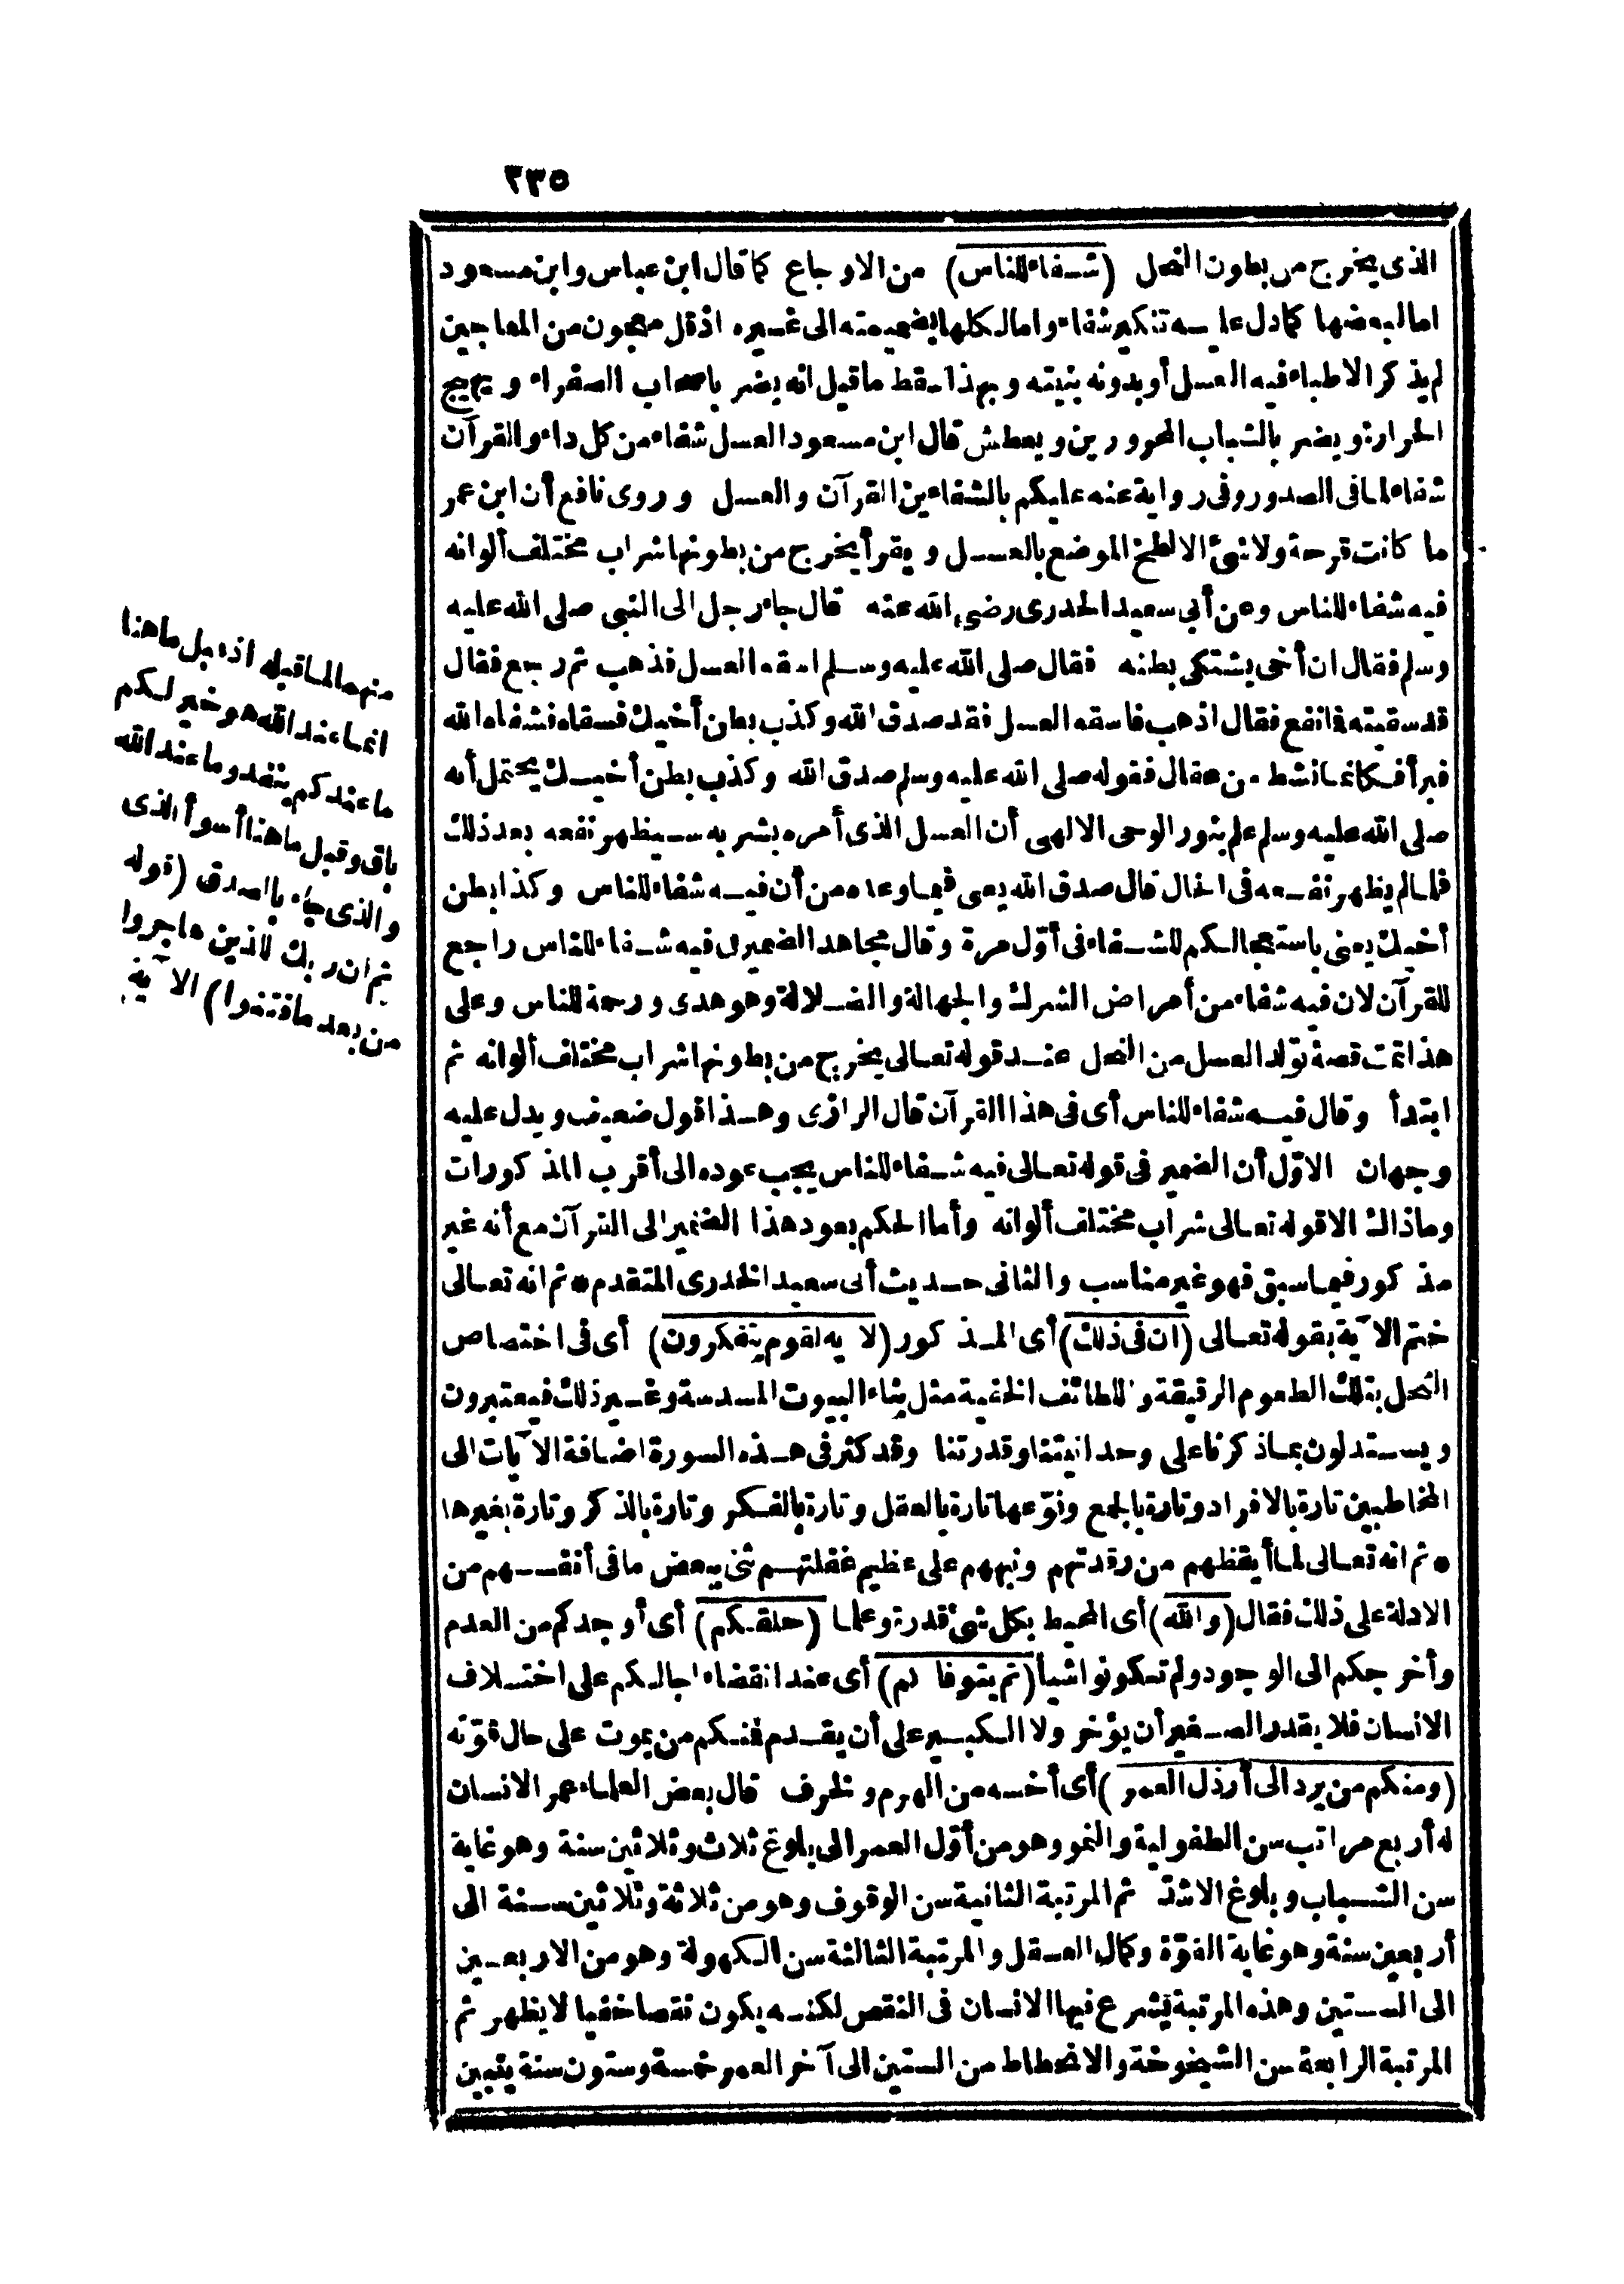 ٢٣٥
الذى يخرج من بطون النحل (شفاء للناس) من الاوجاع كما قال ابن عباس وابن مسعود
اما لبعضها كما دل عليه تنكير شفاء واما لكلها بضميمته الى غيره اذ قل معجون من المعاجين
لم يذكر الاطباء فيه العسل أو بدونه بنيته وبهذا سقط ما قيل انه يضر باصحاب الصفراء ويهيج
الحرارة ويضر بالشباب المحرورين ويعطش قال ابن مسعود العسل شفاء من كل داء والقرآن
شفاء لما فى الصدور وفى رواية عنه عليكم بالشفاءين القرآن والعسل وروى نافع أن ابن عمر
ما كانت قرحة ولا شئ الا لطخ الموضع بالعسل ويقرأ يخرج من بطونها شراب مختلف ألوانه
فيه شفاء للناس وعن أبى سعيد الخدرى رضى الله عنه قال جاء رجل الى النبى صلى الله عليه
وسلم فقال ان أخى يشتكى بطنه فقال صلى الله عليه وسلم اسقه العسل فذهب ثم رجع فقال
قد سقيته فما نفع فقال اذهب فاسقه العسل فقد صدق الله وكذب بطن أخيك فسقاه فشفاه الله
فبرأ فكانما نشط من عقال فقوله صلى الله عليه وسلم صدق الله وكذب بطن أخيك يحتمل أنه
صلى الله عليه وسلم علم بنور الوحى الالهى أن العسل الذى أمره بشربه سيظهر نفعه بعد ذلك
فلما لم يظهر نفعه فى الحال قال صدق الله يعنى فيما وعده من أن فيه شفاء للناس وكذا بطن
أخيك يعنى باستعجالكم للشفاء فى أوّل مرة وقال مجاهد الضمير فى فيه شفاء للناس راجع
للقرآن لان فيه شفاء من أمراض الشرك والجهالة والضلالة وهو هدى ورحمة للناس وعلى
هذا تمت قصة تولد العسل من النحل عند قوله تعالى يخرج من بطونها شراب مختلف ألوانه ثم
ابتدأ وقال فيه شفاء للناس أى فى هذا القرآن قال الرازى وهذا قول ضعيف ويدل عليه
وجهان الاوّل أن الضمير فى قوله تعالى فيه شفاء للناس يجب عوده الى أقرب المذكورات
وما ذاك الا قوله تعالى شراب مختلف ألوانه وأما الحكم بعود هذا الضمير الى القرآن مع أنه غير
مذكور فيما سبق فهو غير مناسب والثانى حديث أبى سعيد الخدرى المتقدم * ثم انه تعالى
ختم الآية بقوله تعالى (ان فى ذلك) أى المذكور (لآية لقوم يتفكرون) أى فى اختصاص
النحل بتلك الطعوم الرقيقة واللطائف الخفية مثل بناء البيوت المسدسة وغير ذلك فيعتبرون
ويستدلون بما ذكرنا على وحدانيتنا وقدرتنا وقد كثر فى هذه السورة اضافة الآيات الى
المخاطبين تارة بالافراد وتارة بالجمع ونوّعها تارة بالعقل وتارة بالفكر وتارة بالذكر وتارة بغيرها
* ثم انه تعالى لما أيقظهم من رقدتهم ونبههم على عظيم غفلتهم ثنى ببعض ما فى أنفسهم من
الادلة على ذلك فقال (والله) أى المحيط بكل شئ قدرة وعلما (خلقكم) أى أوجدكم من العدم
وأخرجكم الى الوجود ولم تكونوا شيأ (ثم يتوفاكم) أى عند انقضاء اجالكم على اختلاف
الانسان فلا يقدر الصغير أن يؤخر ولا الكبير على أن يقدم فمنكم من يموت على حال قوّته
(ومنكم من يرد الى أرذل العمر) أى أخسه من الهرم والخرف قال بعض العلماء عمر الانسان
له أربع مراتب سن الطفولية والنمو وهو من أوّل العمر الى بلوغ ثلاث وثلاثين سنة وهو غاية
سن الشباب وبلوغ الاشدّ ثم المرتبة الثانية سن الوقوف وهو من ثلاثة وثلاثين سنة الى
أربعين سنة وهو غاية القوّة وكمال العقل والمرتبة الثالثة سن الكهولة وهو من الاربعين
الى الستين وهذه المرتبة يشرع فيها الانسان فى النقص لكنه يكون نقصا خفيا لا يظهر ثم
المرتبة الرابعة سن الشيخوخة والانحطاط من الستين الى آخر العمر خمسة وستون سنة يتبين
منهما لما قبله اذ قبل ما هنا
انما عند الله هو خير لكم
ما عندكم ينفد وما عند الله
باق وقبل ما هنا أسوأ الذى
والذى جاء بالصدق (قوله
ثم ان ربك للذين هاجروا
من بعد ما فتنوا) الآية